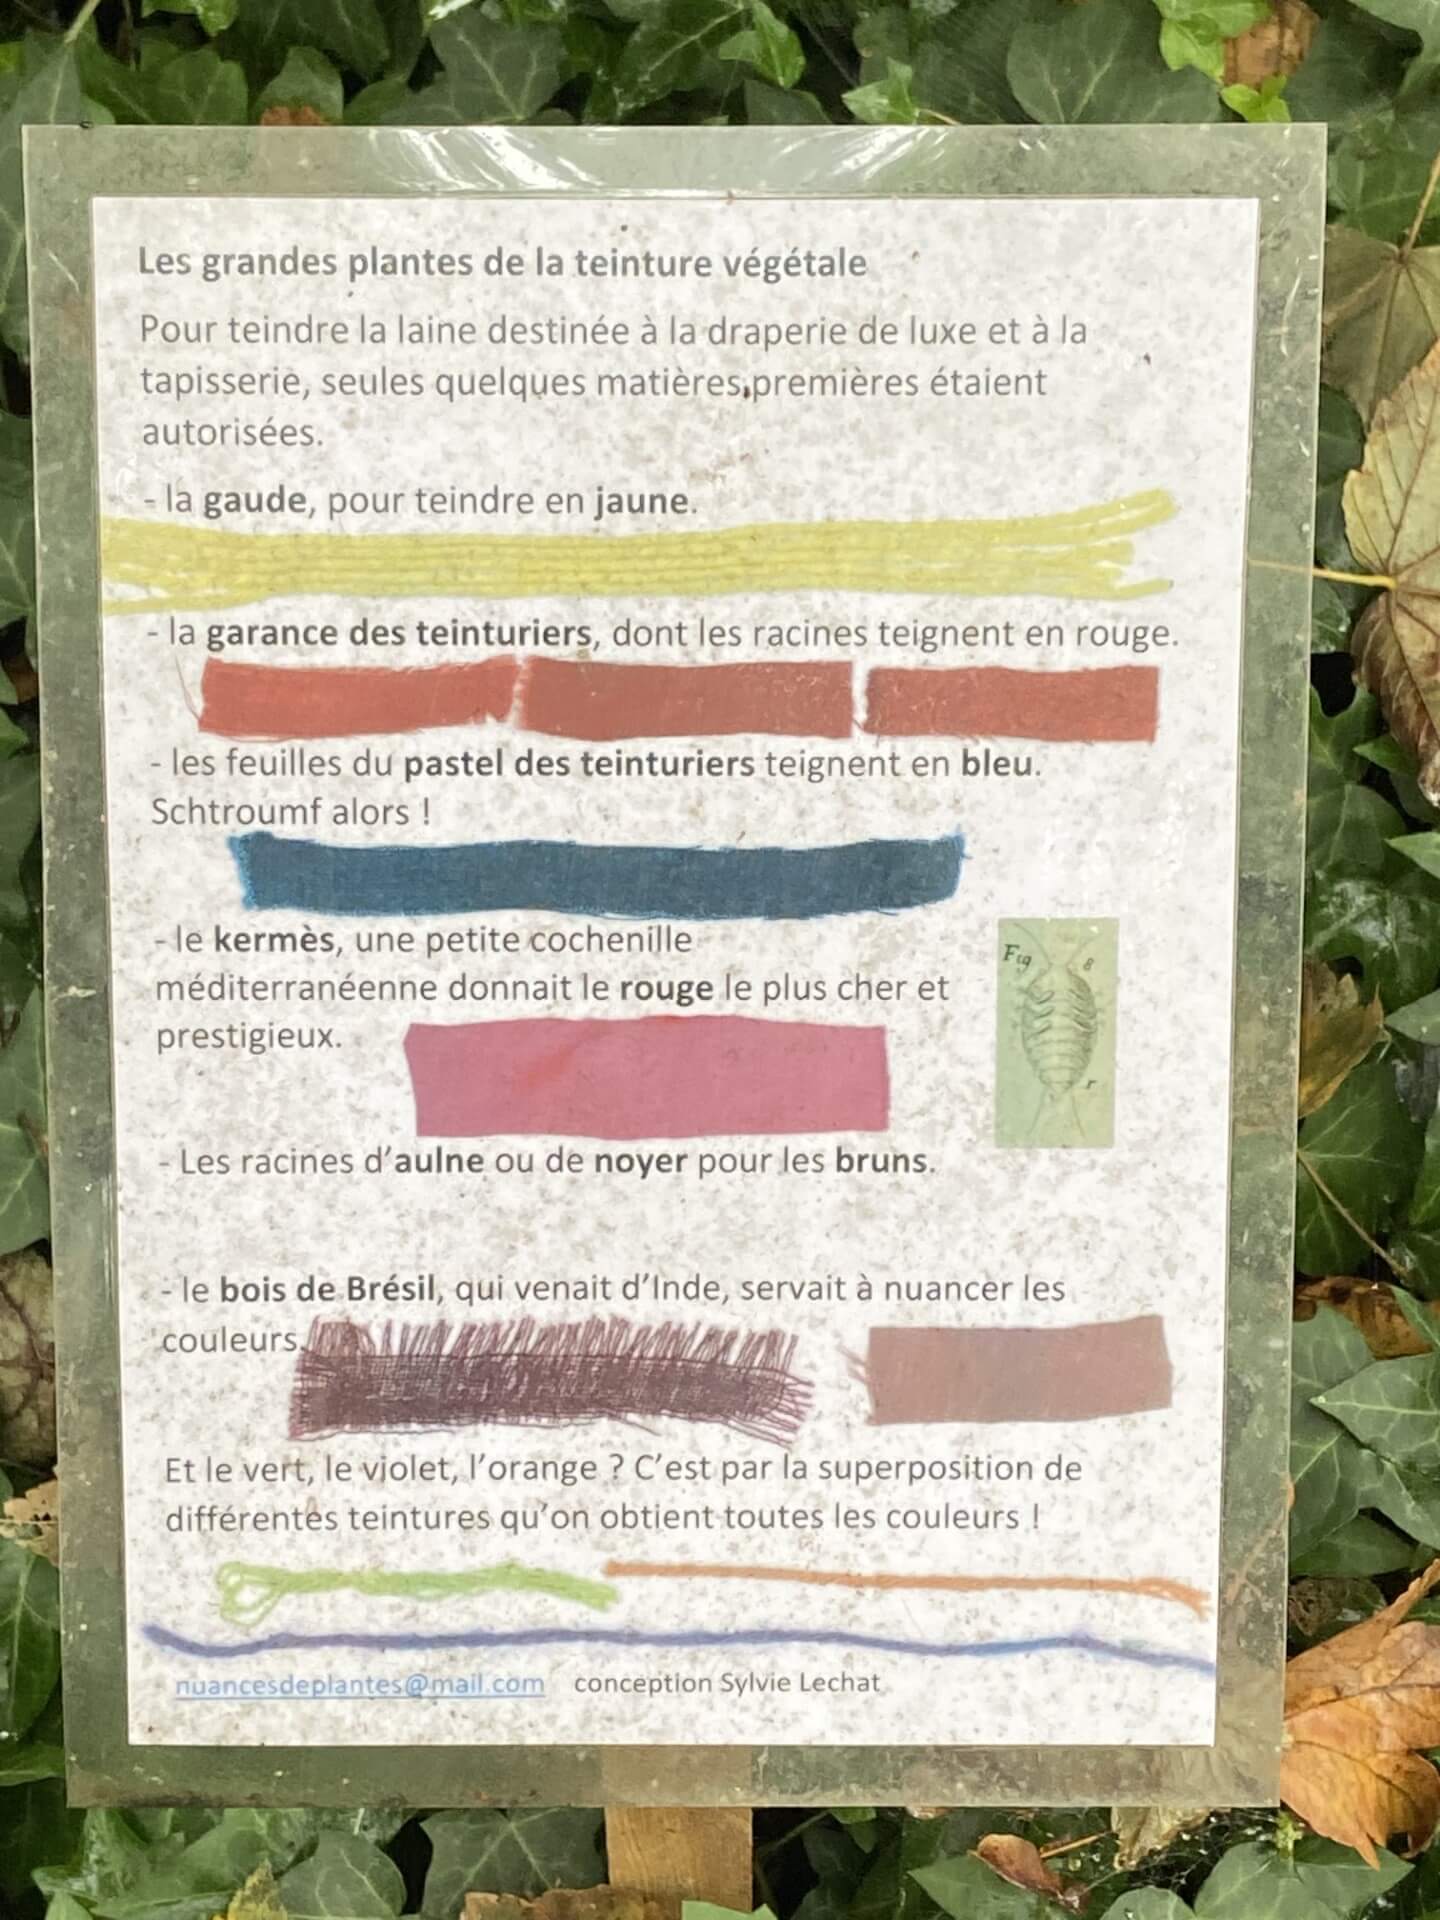 Les grandes plantes de la teinture végétale
Pour teindre la laine destinée à la draperie de luxe et à la
tapisserie, seules quelques matières premières étaient
autorisées.
- la gaude, pour teindre en jaune.
- la garance des teinturiers, dont les racines teignent en rouge.
- les feuilles du pastel des teinturiers teignent en bleu.
Schtroumf alors !
- le kermès, une petite cochenille
méditerranéenne donnait le rouge le plus cher et
prestigieux.
Fig 8
r
- Les racines d'aulne ou de noyer pour les bruns.
- le bois de Brésil, qui venait d'Inde, servait à nuancer les
couleurs.
Et le vert, le violet, l'orange ? C'est par la superposition de
différentes teintures qu'on obtient toutes les couleurs !
nuancesdeplantes@mail.com conception Sylvie Lechat